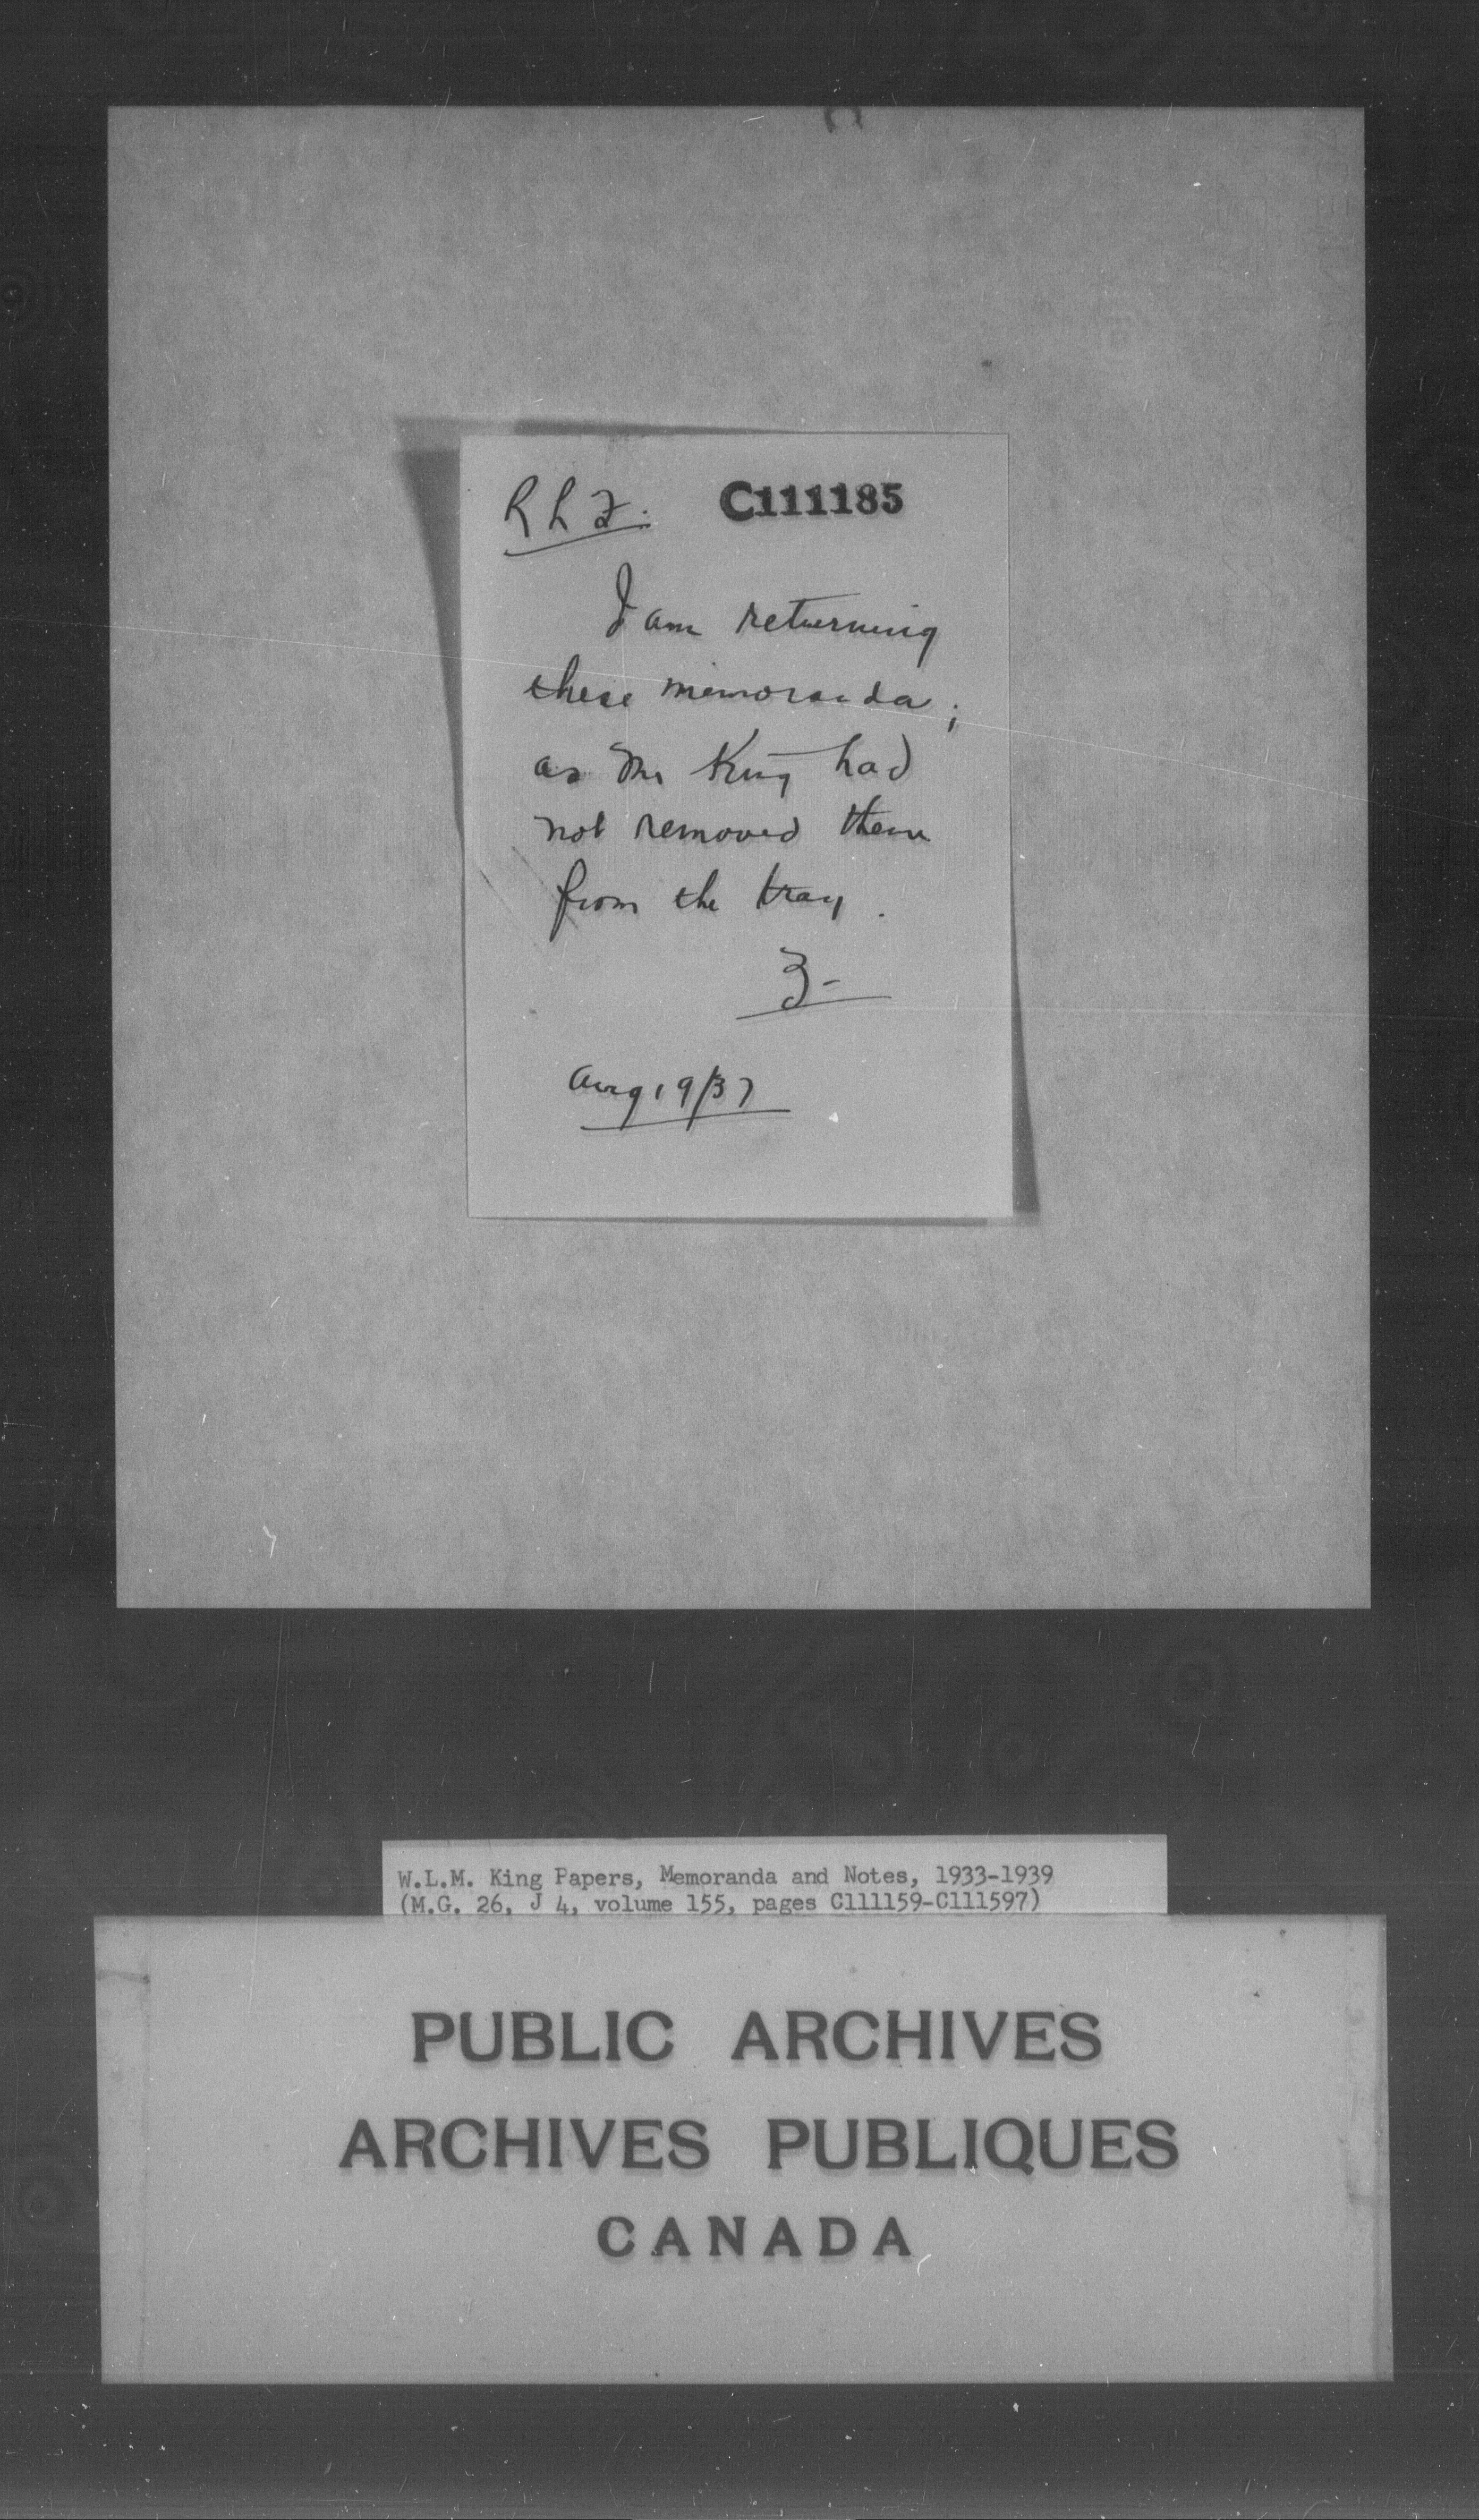 C111185
I am returning
these memoranda;
as Mr King had
not removed them
from the tray.
Aug 19/37
W.L.M. King Papers, Memoranda and Notes, 1933-1939
(M.G. 26, J 4, volume 155, pages C111159-C111597)
PUBLIC ARCHIVES
ARCHIVES PUBLIQUES
CANADA